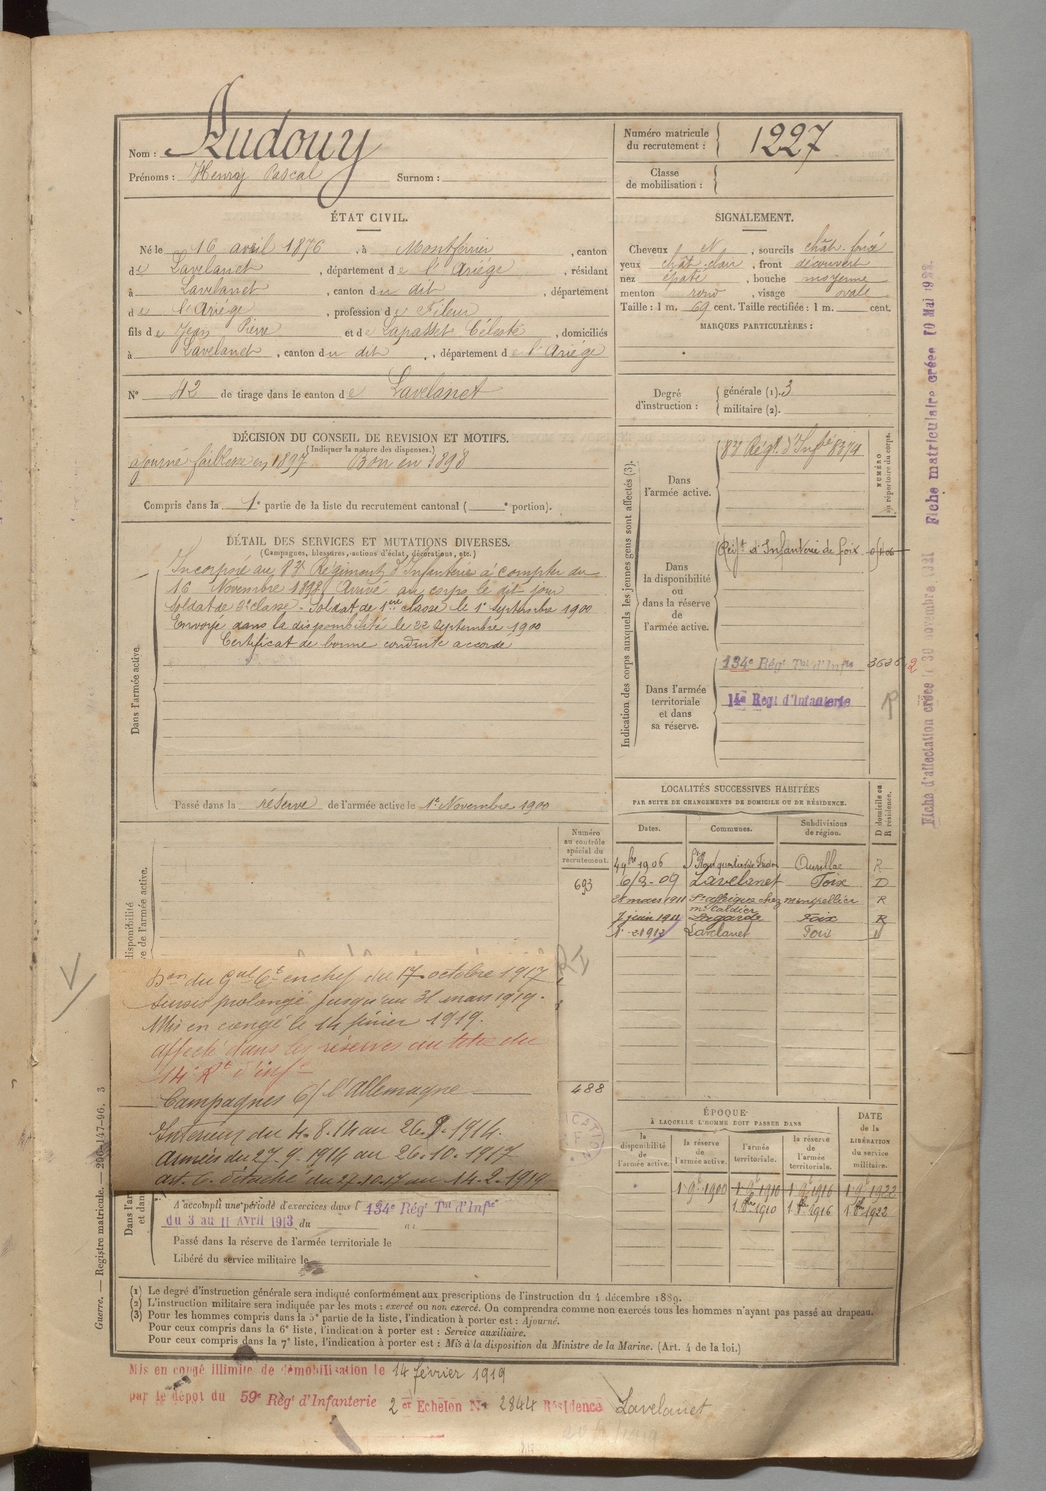 Nom : Audouy
Prénoms : Henry Pascal Surnom :
Numéro matricule du recrutement : 1227
Classe de mobilisation :
ÉTAT CIVIL.
Né le 16 avril 1876, à Montferrier, canton
de Lavelanet, département de l'Ariége, résidant
à Lavelanet, canton du dit, département
d e l'Ariége, profession de Fileur
fils de Jean Pierre et de Lapasset Céleste, domiciliés
à Lavelanet, canton du dit, département de l'Ariége
N° 42 de tirage dans le canton de Lavelanet
SIGNALEMENT.
Cheveux N, sourcils chât. foncé
yeux chât. clair, front découvert
nez épaté, bouche moyenne
menton rond, visage ovale
Taille : 1 m. 69 cent. Taille rectifiée : 1 m. cent.
MARQUES PARTICULIÈRES :
Degré d'instruction : générale (1). 3
militaire (2).
DÉCISION DU CONSEIL DE REVISION ET MOTIFS.
(Indiquer la nature des dispenses.)
ajourné faiblesse en 1897 Bon en 1898
Compris dans la 1e partie de la liste du recrutement cantonal ( e portion).
DÉTAIL DES SERVICES ET MUTATIONS DIVERSES.
(Campagnes, blessures, actions d'éclat, décorations, etc.)
Dans l'armée active.
Incorporé au 83e Régiment d'Infanterie à compter du
16 Novembre 1898 Arrivé au corps le dit jour
soldat de 2e classe. Soldat de 1ère classe le 1er septembre 1900
Envoyé dans la disponibilité le 22 Septembre 1900
Certificat de bonne conduite accordé
Passé dans la réserve de l'armée active le 1er Novembre 1900
Indication des corps auxquels les jeunes gens sont affectés (3).
NUMÉRO au répertoire du corps.
Dans l'armée active.
83e Régt. d'Infie 8374
Dans la disponibilité ou dans la réserve de l'armée active.
Régt d'Infanterie de foix
Dans l'armée territoriale et dans sa réserve.
134e Régt Tal d'Infie
14e Regt d'Infanterie
R
Fiche matriculaire créée 10 Mai 1922.
Fiche d'affectation créée le 30 novembre 1921
LOCALITÉS SUCCESSIVES HABITÉES
PAR SUITE DE CHANGEMENTS DE DOMICILE OU DE RÉSIDENCE.
Dates. Communes. Subdivisions de région. D domicile ou R résidence.
1906 Aurillac R
6/3-09 Lavelanet Foix D
28 mars 1911 R
7 juin 1911 Lagarde Foix R
Lavelanet Foix
Numéro au contrôle spécial du recrutement.
693
488
Don du Gal Ct en chef du 17 octobre 1917
Sursis prolongé jusqu'au 31 mars 1919.
Mis en congé le 14 février 1919.
Affecté dans les réserves au titre du
14e Rt d'Inf
Campagnes c/ l'Allemagne
Intérieur du 4.8.14 au 26.9.1914.
Armées du 27.9.1914 au 26.10.1917
détaché du 27.10.17 au 14.2.1919
A accompli une période d'exercices dans l 134e Régt Tal d'Infie
du 3 au 11 Avril 1913 du au
Passé dans la réserve de l'armée territoriale le
Libéré du service militaire le
ÉPOQUE
À LAQUELLE L'HOMME DOIT PASSER DANS
DATE DE LA LIBÉRATION du service militaire.
la disponibilité de l'armée active. la réserve de l'armée active. l'armée territoriale. la réserve de l'armée territoriale.
1 9bre 1900 1 9bre 1910 1 9bre 1916 1 9bre 1922
1. 8bre 1910 1. 8bre 1916 1. 8bre 1922
Guerre. — Registre matricule. — 296-147-96. 3
(1) Le degré d'instruction générale sera indiqué conformément aux prescriptions de l'instruction du 4 décembre 1889.
(2) L'instruction militaire sera indiquée par les mots : exercé ou non exercé. On comprendra comme non exercés tous les hommes n'ayant pas passé au drapeau.
(3) Pour les hommes compris dans la 5e partie de la liste, l'indication à porter est : Ajourné.
Pour ceux compris dans la 6e liste, l'indication à porter est : Service auxiliaire.
Pour ceux compris dans la 7e liste, l'indication à porter est : Mis à la disposition du Ministre de la Marine. (Art. 4 de la loi.)
Mis en congé illimité de démobilisation le 14 février 1919
par le dépôt du 59e Régt d'Infanterie 2e Echelon N° 2844 Résidence Lavelanet